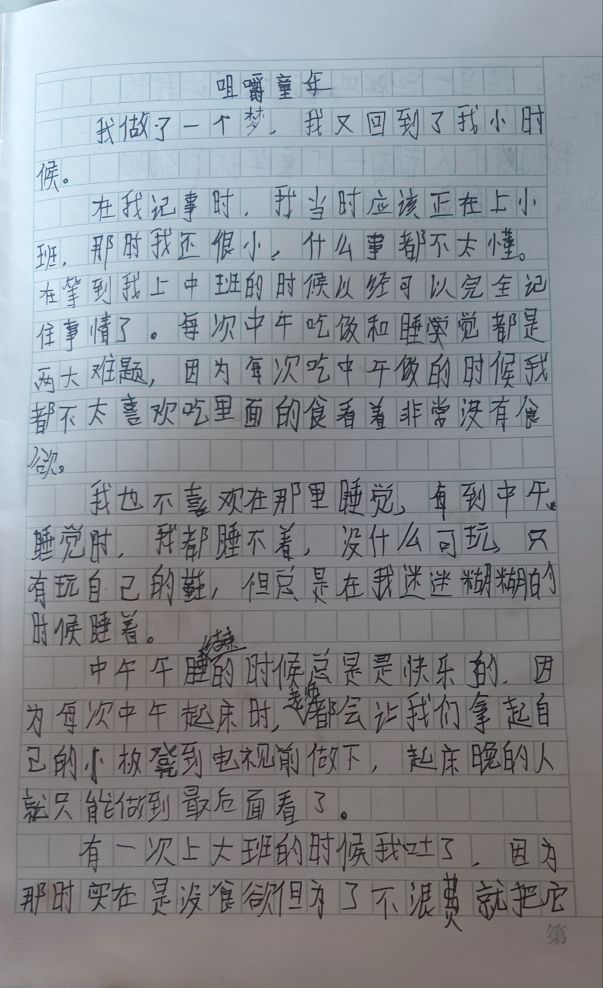 咀嚼童年
我做了一个梦，我又回到了我小时
候。
在我记事时，我当时应该正在上小
班，那时我还很小，什么事都不太懂。
在等到我上中班的时候以经可以完全记
住事情了。每次中午吃饭和睡觉都是
两大难题，因为每次吃中午饭的时候我
都不太喜欢吃里面的食看着非常没有食
欲。
我也不喜欢在那里睡觉，每到中午
睡觉时，我都睡不着，没什么可玩，只
有玩自己的鞋，但总是在我迷迷糊糊的
时候睡着。
中午午睡结束的时候总是是快乐的，因
为每次中午起床时，老师都会让我们拿起自
己的小板凳到电视前做下，起床晚的人
就只能做到最后面看了。
有一次上大班的时候我吐了，因为
那时实在是没食欲但为了不浪费就把它
第